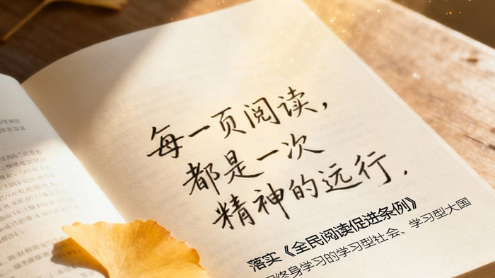 每一页阅读，
都是一次
精神的远行.
落实《全民阅读促进条例》
终身学习的学习型社会、学习型大国